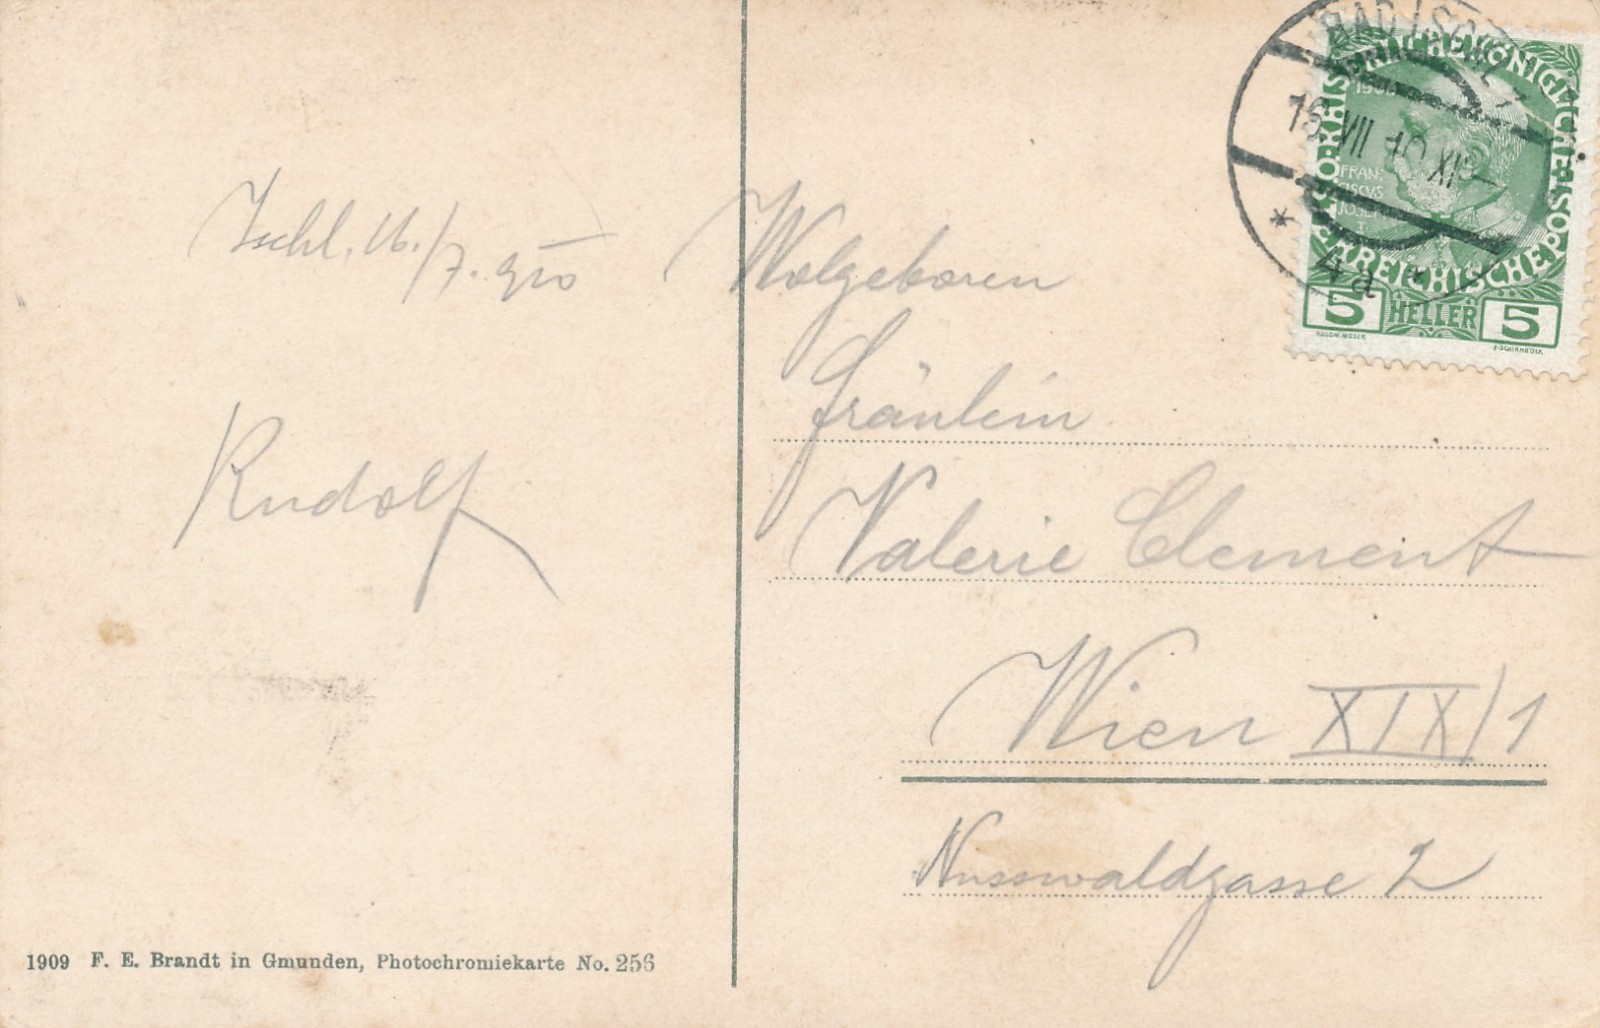 Ischl. 16./7. 910
Rudolf
1909 F. E. Brandt in Gmunden, Photochromiekarte No. 256
Wolgeboren
Fräulein
Valerie Clement
Wien XIX/1
Nusswaldgasse 2
BAD ISCHL
16. VII 10 XII
* 4a *
KAISERLICHE KÖNIGLICHE
ÖSTERREICHISCHE POST
1908
FRAN:
CISCVS
JOSEPH
I
5 HELLER 5
KOLOM. MOSER
F. SCHIRNBÖCK